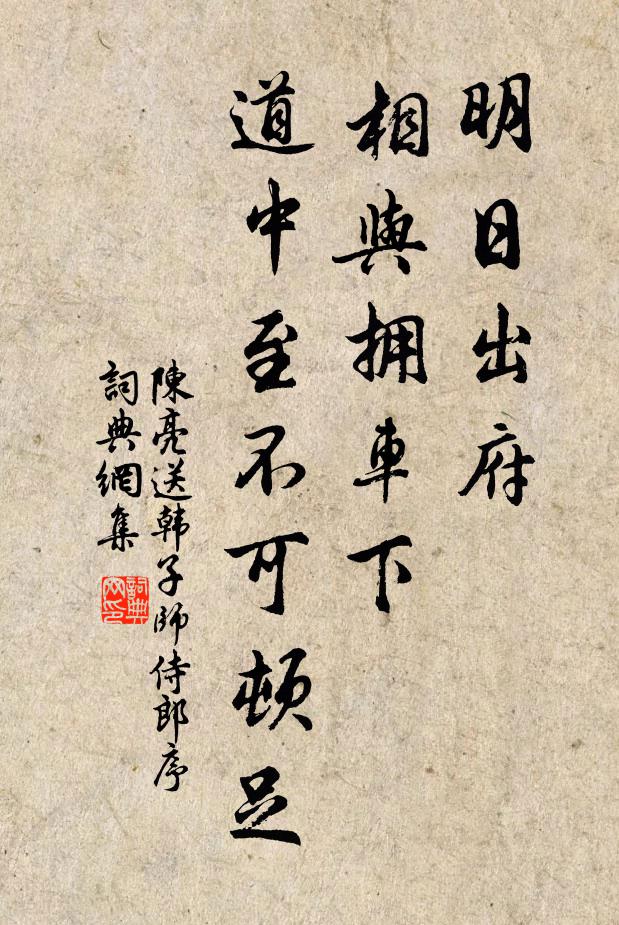 明日出府
相與拥車下
道中至不可頓足
陳亮送韩子師侍郎序
詞典網集
詞典